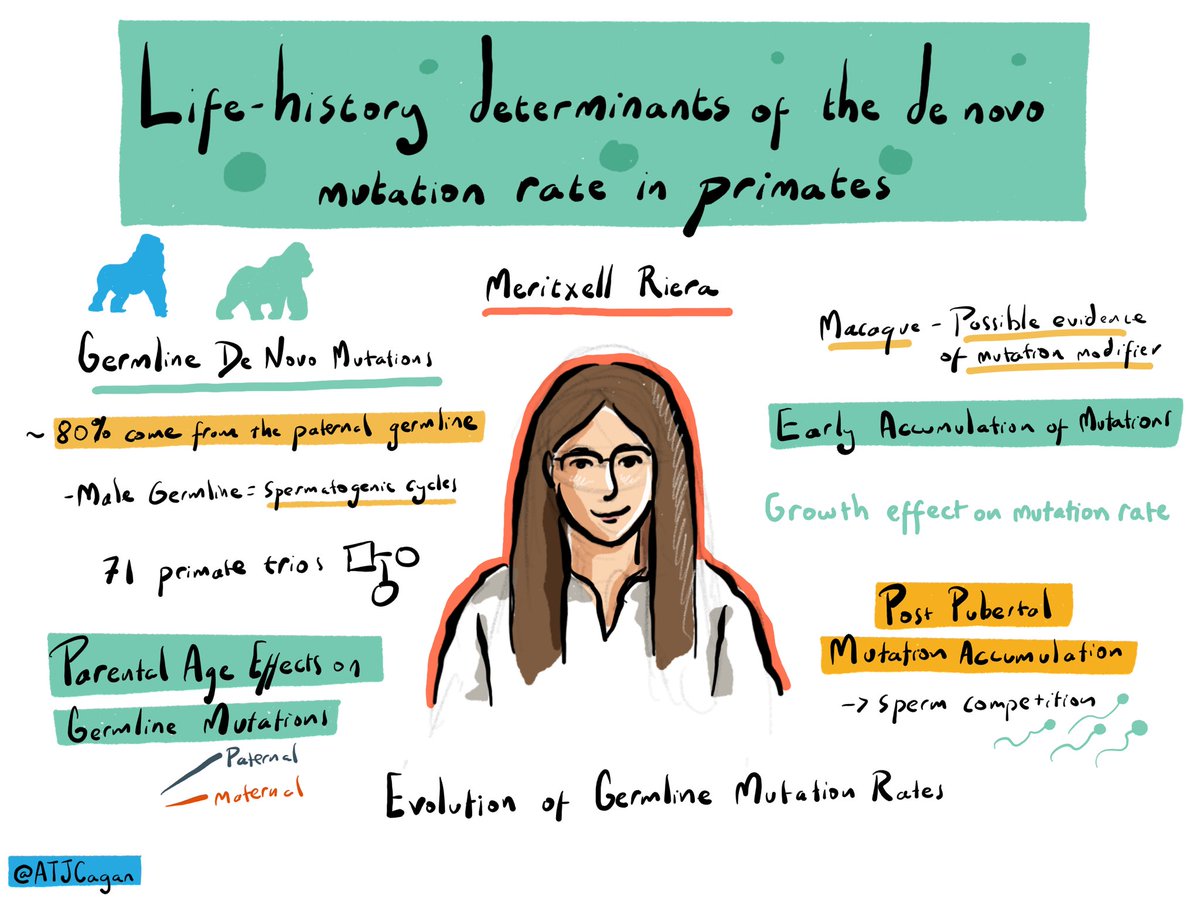 Life-history determinants of the de novo
mutation rate in primates
Meritxell Riera
Germline De Novo Mutations
~ 80% come from the paternal germline
- Male Germline = spermatogenic cycles
71 primate trios
Parental Age Effects on
Germline Mutations
Paternal
Maternal
Macaque - Possible evidence
of mutation modifier
Early Accumulation of Mutations
Growth effect on mutation rate
Post Pubertal
Mutation Accumulation
-> sperm competition
Evolution of Germline Mutation Rates
@ATJCagan